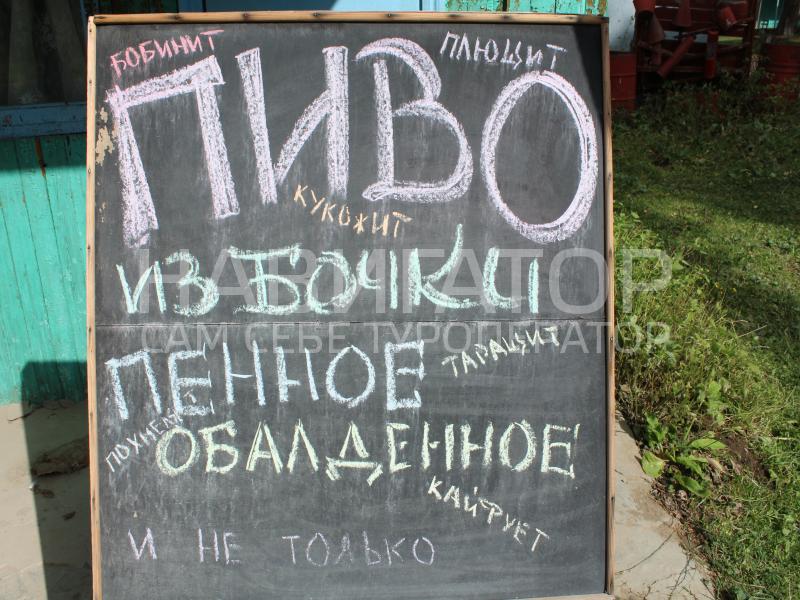 БОБИНИТ
ПЛЮЩИТ
ПИВО
КУКОЖИТ
ИЗ БОЧКИ
НАВИГАТОР
САМ СЕБЕ ТУРОПЕРАТОР
ПЕННОЕ
ТАРАЩИТ
ОБАЛДЕННОЕ
КАЙФУЕТ
И НЕ ТОЛЬКО